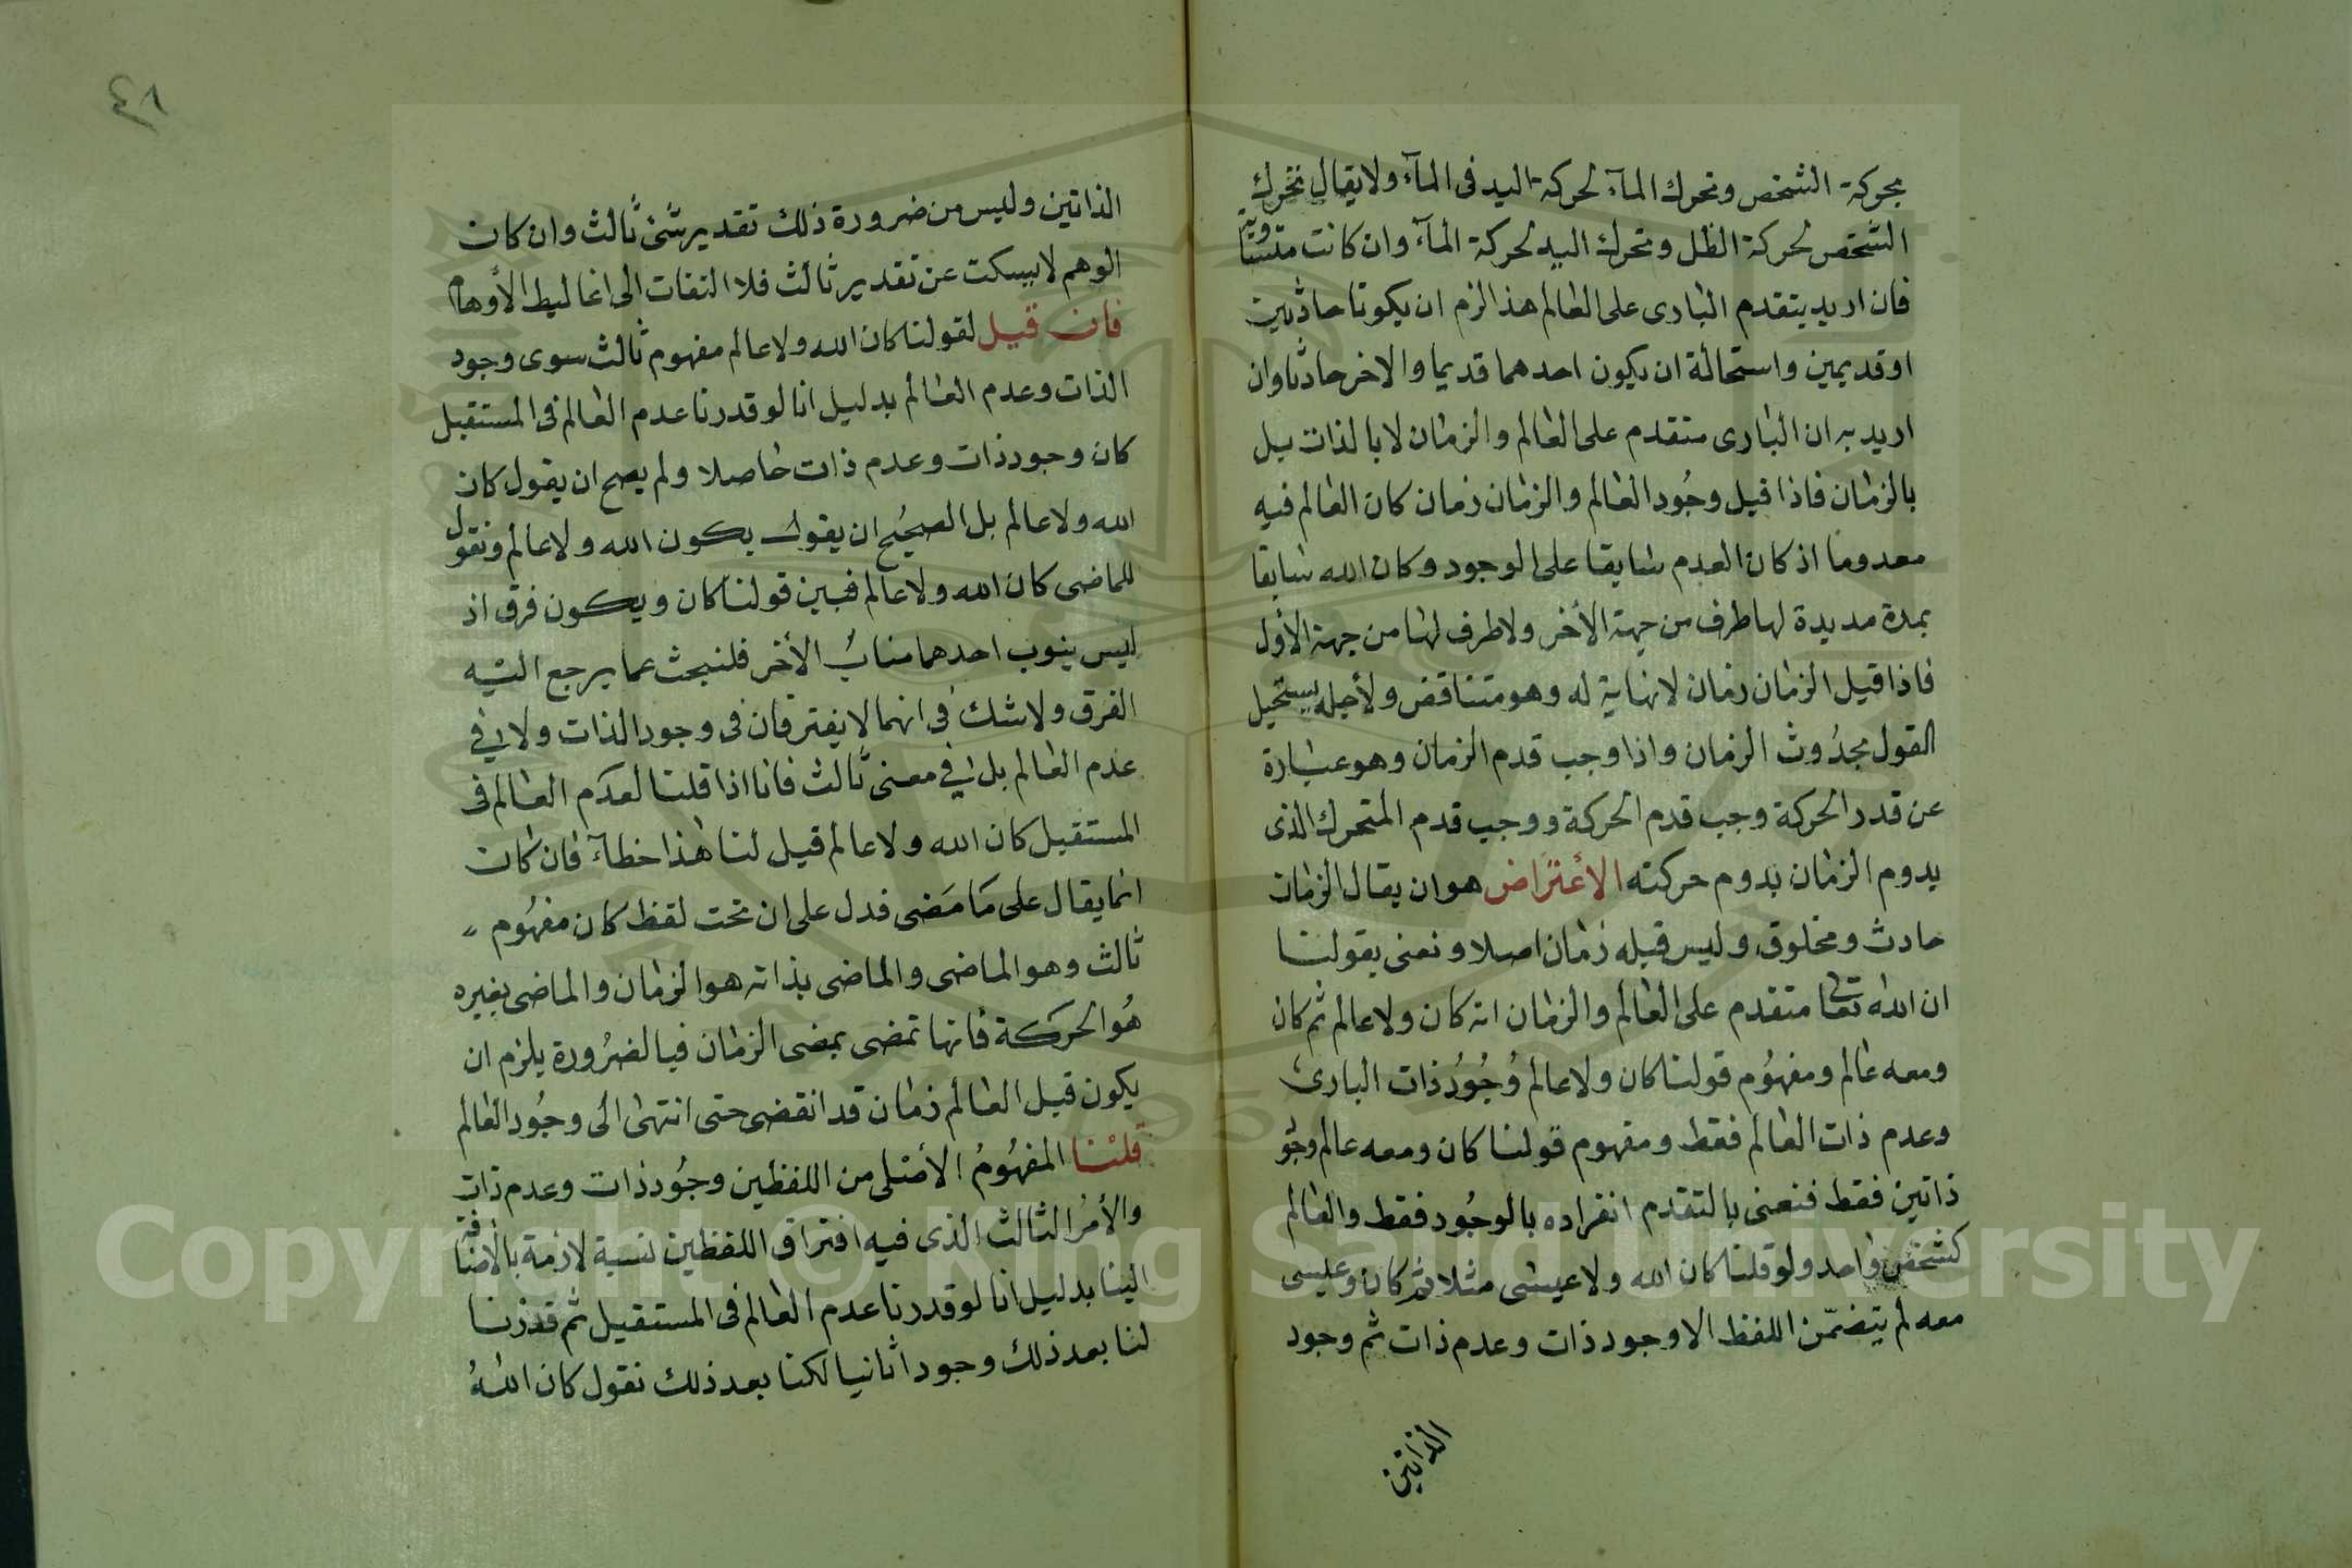 بحركة الشخص وتحرك المآء لحركة اليد فى المآء ولا يقال تحرك
الشخص لحركة الظل وتحرك اليد لحركة المآء وان كانت متساوية
فان اريد يتقدم البارى على العالم هذا لزم ان يكونا حادثين
او قديمين واستحالة ان يكون احدهما قديما والاخر حادثا وان
اريد به ان البارى متقدم على العالم والزمان لا بالذات بل
بالزمان فاذا قيل وجُود العالم والزمان زمان كان العالم فيه
معدوما اذ كان العدم سابقا على الوجود وكان الله سابقا
بمدة مديدة لها طرف من جهة الأخر ولا طرف لها من جهة الأول
فاذا قيل الزمان زمان لا نهاية له وهو متناقض ولأجله يستحيل
القول بحدُوث الزمان واذا وجب قدم الزمان وهو عبارة
عن قدر الحركة وجب قدم الحركة ووجب قدم المتحرك الذى
يدوم الزمان بدوم حركته الأعتراض هو ان يقال الزمان
حادث ومخلوق وليس قبله زمان اصلا ونعنى بقولنا
ان الله تعالى متقدم على العالم والزمان انه كان ولا عالم ثم كان
ومعه عالم ومفهوم قولنا كان ولا عالم وُجُودُ ذات البارى
وعدم ذات العالم فقط ومفهوم قولنا كان ومعه عالم وجو
ذاتين فقط فنعنى بالتقدم انفراده بالوجُود فقط والعالم
كشخص واحد ولو قلنا كان الله ولا عيسى مثلا ثم كان وعيسى
معه لم يتضمّن اللفظ الا وجود ذات وعدم ذات ثم وجود
الذاتين
٤٨
الذاتين وليس من ضرورة ذلك تقدير شئ ثالث وان كان
الوهم لا يسكت عن تقدير ثالث فلا التفات الى اغاليط الأوهام
فان قيل لقولنا كان الله ولا عالم مفهوم ثالث سوى وجود
الذات وعدم العالم بدليل انا لو قدرنا عدم العالم فى المستقبل
كان وجود ذات وعدم ذات حاصلا ولم يصح ان يقول كان
الله ولا عالم بل الصحيُح ان يقول يكون الله ولا عالم ونقول
للماضى كان الله ولا عالم فبين قولنا كان ويكون فرق اذ
ليس ينوب احدهما منابُ الأخر فلنبحث عما يرجع اليه
الفرق ولا شك فى انهما لا يفترقان فى وجود الذات ولا فى
عدم العالم بل فى معنى ثالث فانا اذا قلنا لعدم العالم فى
المستقبل كان الله ولا عالم قيل لنا هذا خطآء فان كان
انما يقال على مَا مَضى فدل على ان تحت لفظ كان مفهُوم
ثالث وهو الماضى والماضى بذاته هو الزمان والماضى بغيره
هُو الحركة فأنها تمضى بمضى الزمان فبالضرُورة يلزم ان
يكون قبل العالم زمان قد انقضى حتى انتهى الى وجُود العالم
قلنا المفهُومُ الأصلى من اللفظين وجُود ذات وعدم ذات
والأمُر الثالث الذى فيه افتراق اللفظين نسبة لازمة بالأضافة
الينا بدليل انا لو قدرنا عدم العالم فى المستقبل ثم قدرنا
لنا بعد ذلك وجودا ثانيا لكنا بعد ذلك نقول كان اللهُ
Copyright © King Saud University